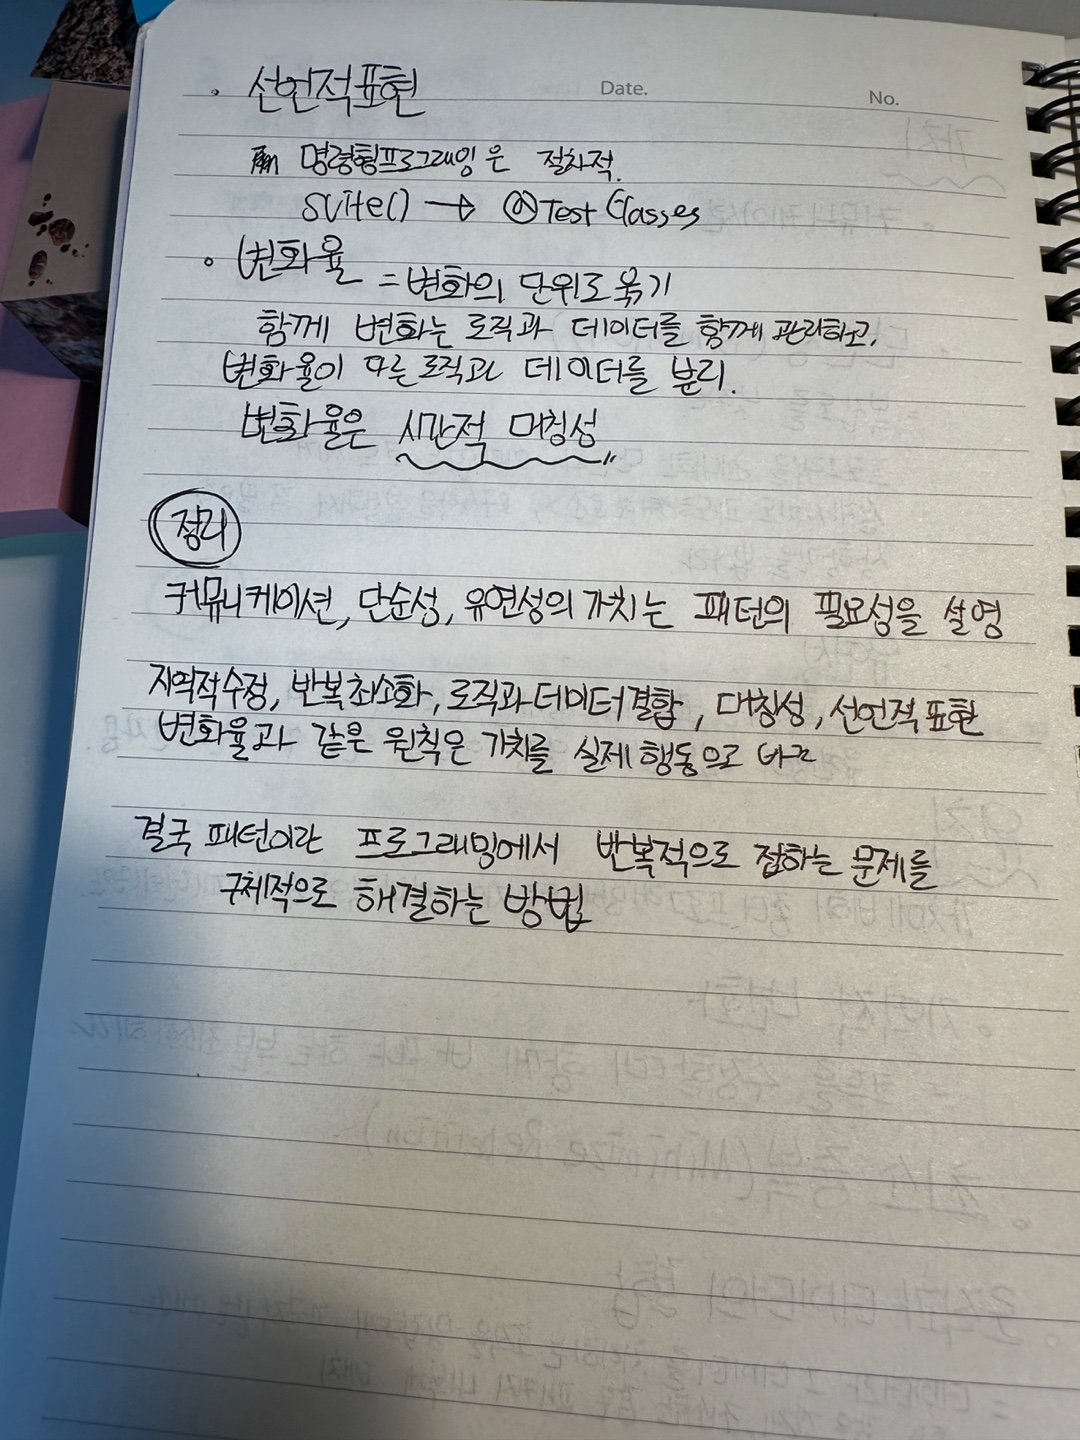 • 선언적표현
Date.
No.
명령형프로그래밍은 절차적.
suite() → @Test Classes
• 변화율 = 변화의 단위로 묶기
함께 변화는 로직과 데이터를 함께 관리하고,
변화율이 다른 로직과 데이터를 분리.
변화율은 시간적 대칭성
정리
커뮤니케이션, 단순성, 유연성의 가치는 패턴의 필요성을 설명
지역적수정, 반복최소화, 로직과데이터결합, 대칭성, 선언적표현
변화율과 같은 원칙은 가치를 실제 행동으로 바꿈
결국 패턴이란 프로그래밍에서 반복적으로 접하는 문제를
구체적으로 해결하는 방법